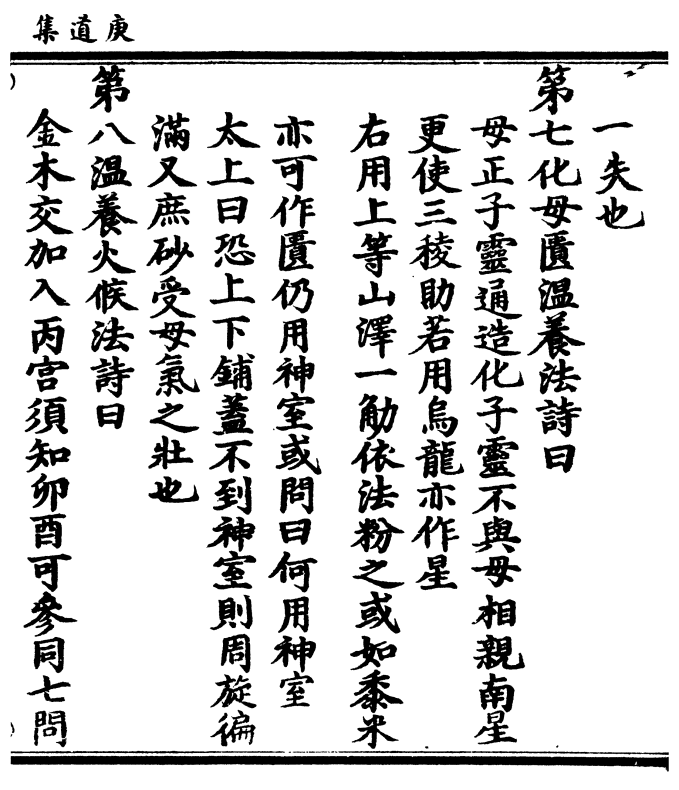 庚道集
一失也
第七化母匱温養法詩曰
母正子靈通造化子靈不與母相親南星
更使三稜助若用烏龍亦作星
右用上等山澤一觔依法粉之或如黍米
亦可作匱仍用神室或問曰何用神室
太上曰恐上下鋪蓋不到神室則周旋徧
滿又庶砂受母氣之壯也
第八温養火候法詩曰
金木交加入丙宮須知卯酉可參同七問